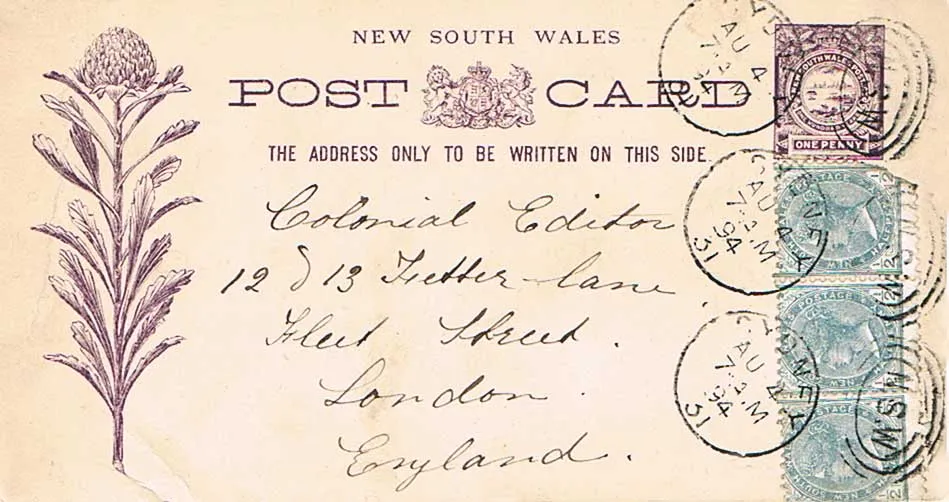 NEW SOUTH WALES
POST CARD
THE ADDRESS ONLY TO BE WRITTEN ON THIS SIDE.
Colonial Editor
12 & 13 Fetter-lane,
Fleet Street.
London.
England.
ONE PENNY
SYDNEY
AU 4
7 A.M
94
31
SYDNEY
AU 4
7 A.M
94
31
POSTAGE
POSTAGE
POSTAGE
NSW